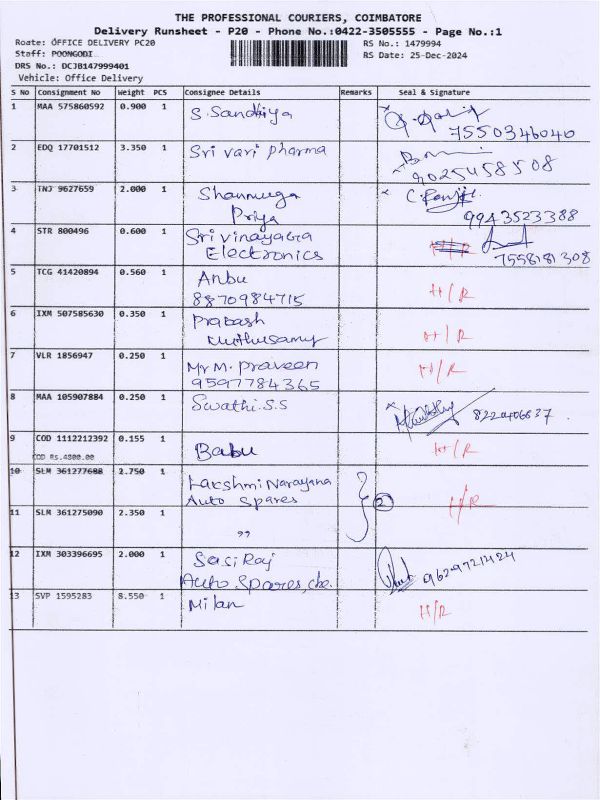 THE PROFESSIONAL COURIERS, COIMBATORE
Delivery Runsheet - P20 - Phone No.:0422-3505555 - Page No.:1
Roate: OFFICE DELIVERY PC20 RS No.: 1479994
Staff: POONGODI RS Date: 25-Dec-2024
DRS No.: DCJB147999401
Vehicle: Office Delivery
S No Consignment No Weight PCS Consignee Details Remarks Seal & Signature
1 MAA 575860592 0.900 1 S. Sandhiya
7550346040
2 EDQ 17701512 3.350 1 Sri vari pharma
9025458508
3 TNJ 9627659 2.000 1 Shanmuga
Priya 9943523388
4 STR 800496 0.600 1 Sri vinayaga
Electronics H/R 7558181308
5 TCG 41420894 0.560 1 Anbu H/R
8870984715
6 IXM 507585630 0.350 1 Prabash H/R
Muthusamy
7 VLR 1856947 0.250 1 Mr M. Praveen H/R
9597784365
8 MAA 105907884 0.250 1 Swathi.S.S
9 COD 1112212392 0.155 1 Babu H/R
COD Rs.4800.00
10 SLM 361277688 2.750 1 Lakshmi Narayana
Auto Spares 2 H/R
11 SLM 361275090 2.350 1 ,,
12 IXM 303396695 2.000 1 Sasi Raj 9629721424
Auto Spares, cbe.
13 SVP 1595283 8.550 1 Milan H/R